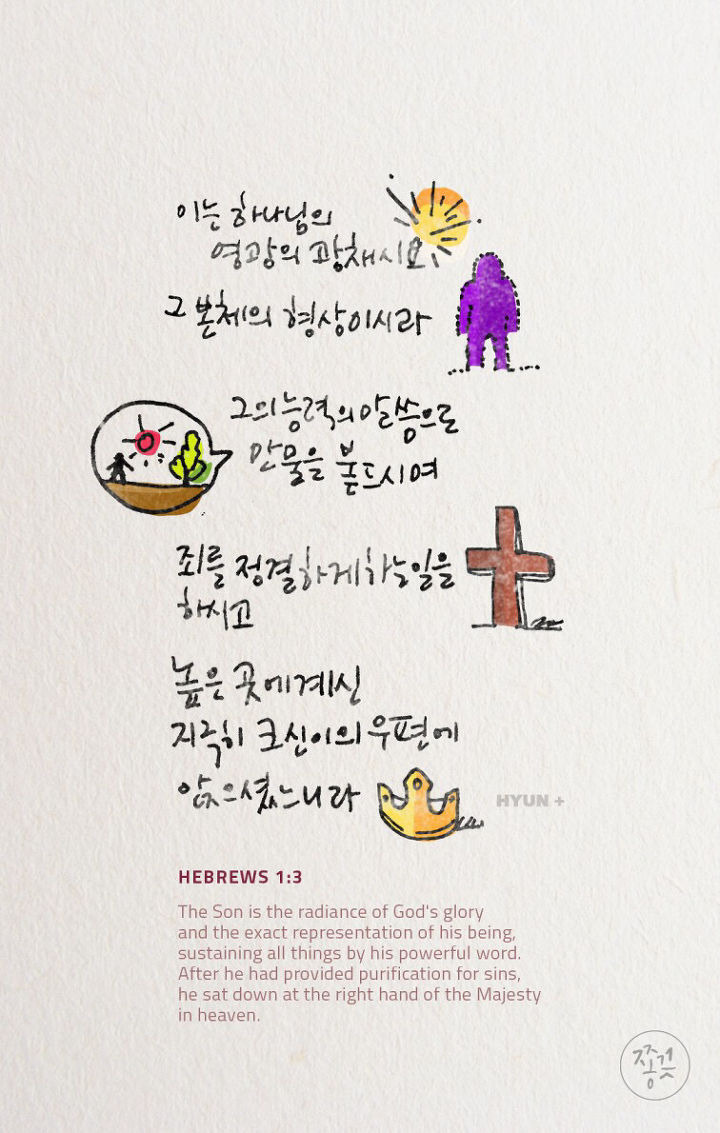 이는 하나님의
영광의 광채시요
그 본체의 형상이시라
그의 능력의 말씀으로
만물을 붙드시며
죄를 정결하게 하는 일을
하시고
높은 곳에 계신
지극히 크신 이의 우편에
앉으셨느니라
HYUN +
HEBREWS 1:3
The Son is the radiance of God's glory
and the exact representation of his being,
sustaining all things by his powerful word.
After he had provided purification for sins,
he sat down at the right hand of the Majesty
in heaven.